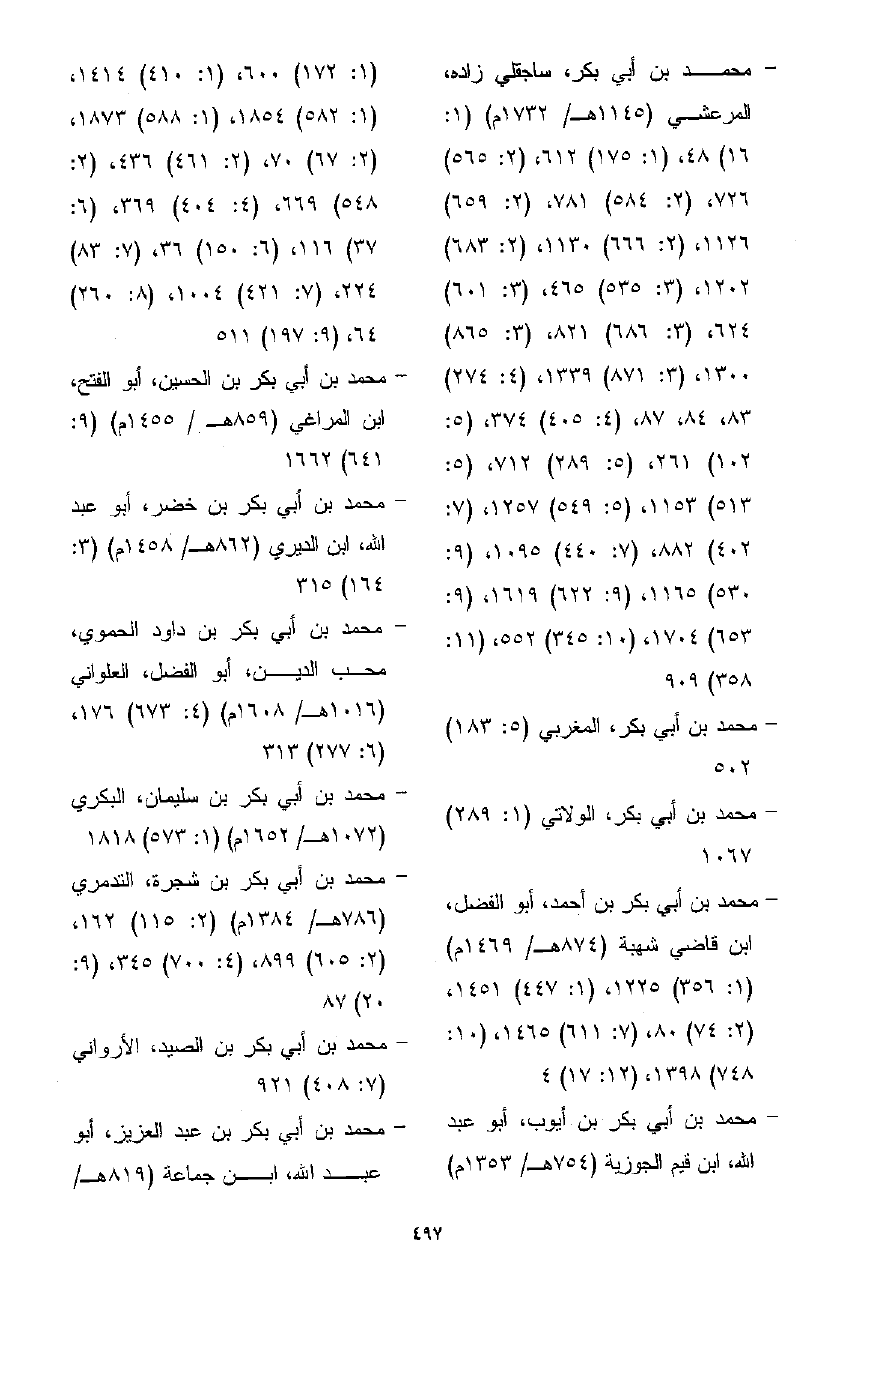 - محمد بن أبي بكر، ساجقلي زاده،
المرعشي (١١٤٥هـ/ ١٧٣٢م) (١:
١٦) ٤٨، (١: ١٧٥) ٦١٢، (٢: ٥٦٥)
٧٢٦، (٢: ٥٨٤) ٧٨١، (٢: ٦٥٩)
١١٢٦، (٢: ٦٦٦) ١١٣٠، (٢: ٦٨٣)
١٢٠٢، (٣: ٥٣٥) ٤٦٥، (٣: ٦٠١)
٦٢٤، (٣: ٦٨٦) ٨٢١، (٣: ٨٦٥)
١٣٠٠، (٣: ٨٧١) ١٣٣٩، (٤: ٢٧٤)
٨٣، ٨٤، ٨٧، (٤: ٤٠٥) ٣٧٤، (٥:
١٠٢) ٢٦١، (٥: ٢٨٩) ٧١٢، (٥:
٥١٣) ١١٥٣، (٥: ٥٤٩) ١٢٥٧، (٧:
٤٠٢) ٨٨٢، (٧: ٤٤٠) ١٠٩٥، (٩:
٥٣٠) ١١٦٥، (٩: ٦٢٢) ١٦١٩، (٩:
٦٥٣) ١٧٠٤، (١٠: ٣٤٥) ٥٥٢، (١١:
٣٥٨) ٩٠٩
- محمد بن أبي بكر، المغربي (٥: ١٨٣)
٥٠٢
- محمد بن أبي بكر، الولاتي (١: ٢٨٩)
١٠٦٧
- محمد بن أبي بكر بن أحمد، أبو الفضل،
ابن قاضي شهبة (٨٧٤هـ/ ١٤٦٩م)
(١: ٣٥٦) ١٢٢٥، (١: ٤٤٧) ١٤٥١،
(٢: ٧٤) ٨٠، (٧: ٦١١) ١٤٦٥، (١٠:
٧٤٨) ١٣٩٨، (١٢: ١٧) ٤
- محمد بن أبي بكر بن أيوب، أبو عبد
الله، ابن قيم الجوزية (٧٥٤هـ/ ١٣٥٣م)
(١: ١٧٢) ٦٠٠، (١: ٤١٠) ١٤١٤،
(١: ٥٨٢) ١٨٥٤، (١: ٥٨٨) ١٨٧٣،
(٢: ٦٧) ٧٠، (٢: ٤٦١) ٤٣٦، (٢:
٥٤٨) ٦٦٩، (٤: ٤٠٤) ٣٦٩، (٦:
٣٧) ١١٦، (٦: ١٥٠) ٣٦، (٧: ٨٣)
٢٢٤، (٧: ٤٢١) ١٠٠٤، (٨: ٢٦٠)
٦٤، (٩: ١٩٧) ٥١١
- محمد بن أبي بكر بن الحسين، أبو الفتح،
ابن المراغي (٨٥٩هـ / ١٤٥٥م) (٩:
٦٤١) ١٦٦٢
- محمد بن أبي بكر بن خضر، أبو عبد
الله، ابن الديري (٨٦٢هـ/ ١٤٥٨م) (٣:
١٦٤) ٣١٥
- محمد بن أبي بكر بن داود الحموي،
محب الدين، أبو الفضل، العلواني
(١٠١٦هـ/ ١٦٠٨م) (٤: ٦٧٣) ١٧٦،
(٦: ٢٧٧) ٣١٣
- محمد بن أبي بكر بن سليمان، البكري
(١٠٧٢هـ/ ١٦٥٢م) (١: ٥٧٣) ١٨١٨
- محمد بن أبي بكر بن شجرة، التدمري
(٧٨٦هـ/ ١٣٨٤م) (٢: ١١٥) ١٦٢،
(٢: ٦٠٥) ٨٩٩، (٤: ٧٠٠) ٣٤٥، (٩:
٢٠) ٨٧
- محمد بن أبي بكر بن الصيد، الأرواني
(٧: ٤٠٨) ٩٢١
- محمد بن أبي بكر بن عبد العزيز، أبو
عبد الله، ابن جماعة (٨١٩هـ/
٤٩٧